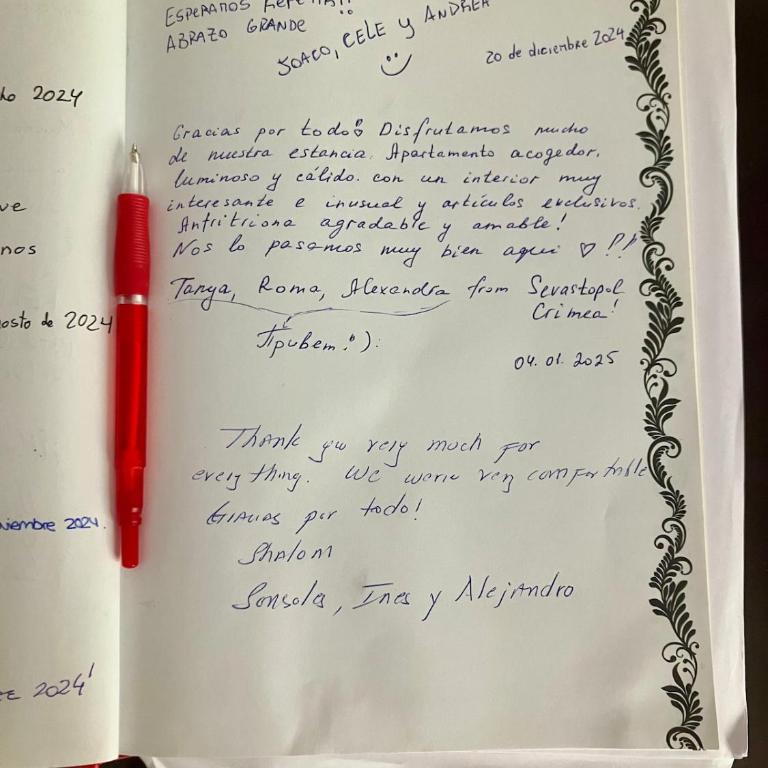 ESPERAMOS
ABRAZO GRANDE
JOACO, CELE y ANDREA
20 de diciembre 2024
Gracias por todo! Disfrutamos mucho
de nuestra estancia. Apartamento acogedor,
luminoso y cálido. con un interior muy
interesante e inusual y artículos exclusivos.
Anfritriona agradable y amable!
Nos lo pasamos muy bien aquí ♡!!!
Tanya, Roma, Alexandra from Sevastopol
Crimea!
Привет! ):
04. 01. 2025
Thank you very much for
everything. We were very comfortable
Gracias por todo!
Shalom
Sonsoles, Ines y Alejandro
2024
ve
nos
osto de 2024
viembre 2024.
2024!